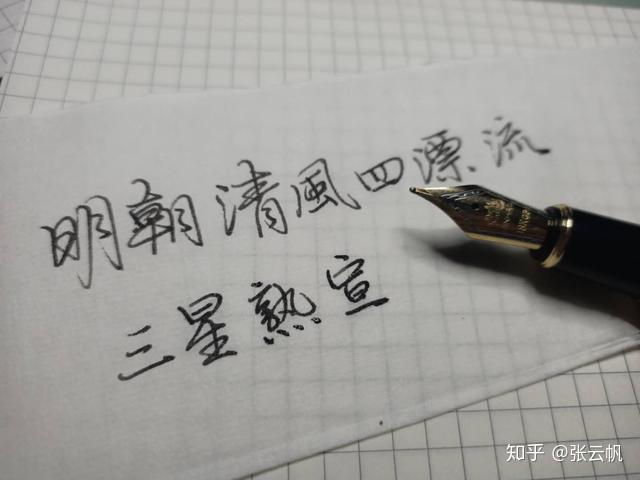 明朝清風四漂流
三星熟宣
知乎 @张云帆